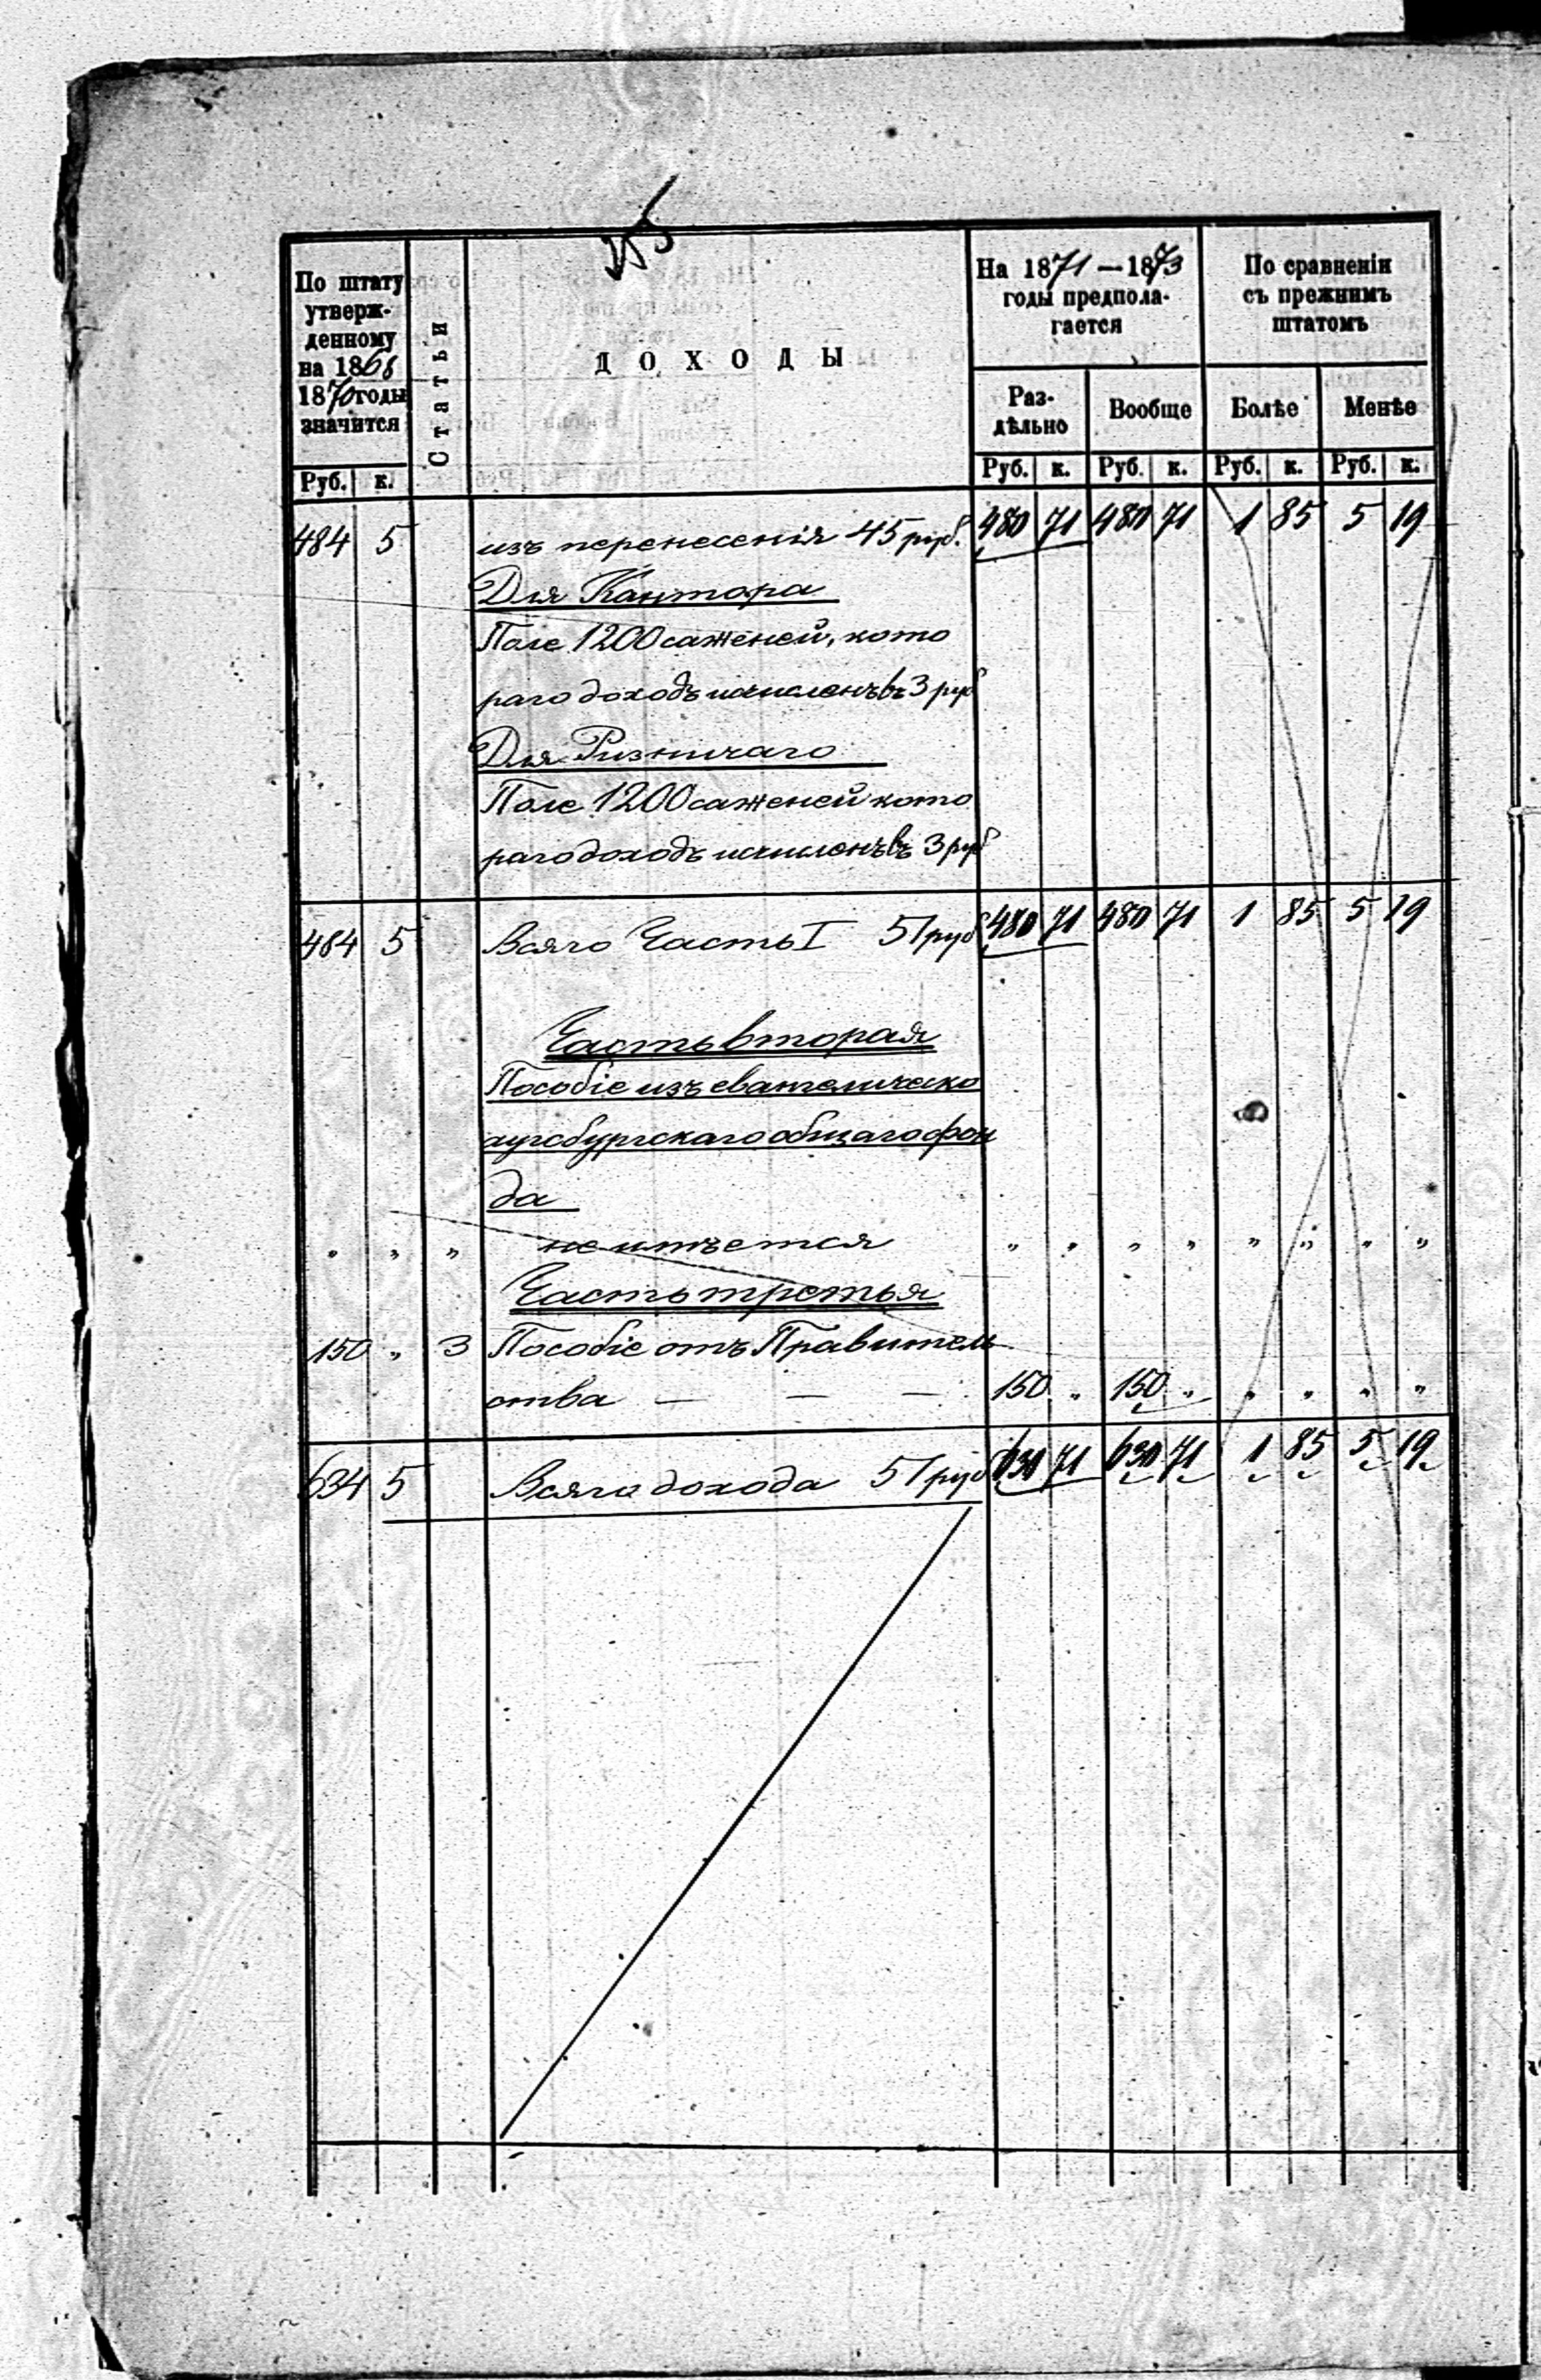 По штату
утверж-
денному
на 1868
1870 годы
значится
Статьи
ДОХОДЫ
На 1871—1873
годы предпола-
гается
По сравненіи
съ прежнимъ
штатомъ
Раз-
дѣльно
Вообще
Болѣе
Менѣе
Руб. к. Руб. к. Руб. к. Руб. к. Руб. к.
484 5 изъ перенесенія 45 руб. 480 71 480 71 1 85 5 19
Для Кантора
Поле 1200 саженей, кото
раго доходъ исчисленъ въ 3 руб
Для Ризничаго
Поле 1200 саженей кото
раго доходъ исчисленъ въ 3 руб
484 5 Всего Часть I 51 руб 480 71 480 71 1 85 5 19
Часть вторая
Пособіе изъ евангелическо
аугсбургскаго общаго фон
да
" " " не имѣется " " " " " " " "
Часть третья
150 " 3 Пособіе отъ Правитель
ства — — — 150 " 150 " " " " "
634 5 Всего дохода 51 руб 630 71 630 71 1 85 5 19